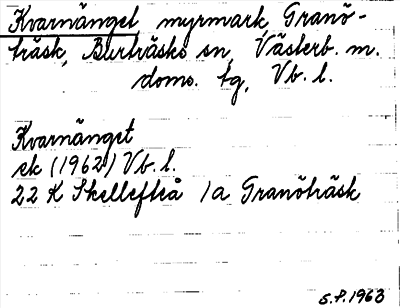 Kvarnänget myrmark, Granö-
träsk, Burträsks sn, Västerb. m.
doms. tg, Vb. l.
Kvarnänget
ek (1962) Vb. l.
22 K Skellefteå 1a Granöträsk
S.P. 1963